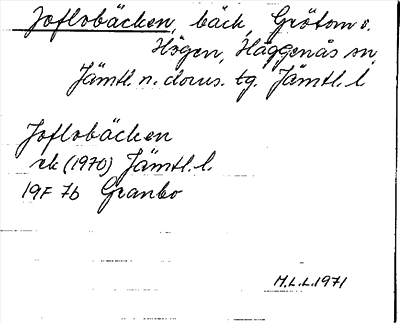 Joflobäcken, bäck, Grötom o.
Högen, Häggenås sn,
Jämtl. n. doms. tg. Jämtl. l
Joflobäcken
rk (1970) Jämtl. l.
19F 7b Granbo
M.L.L. 1971